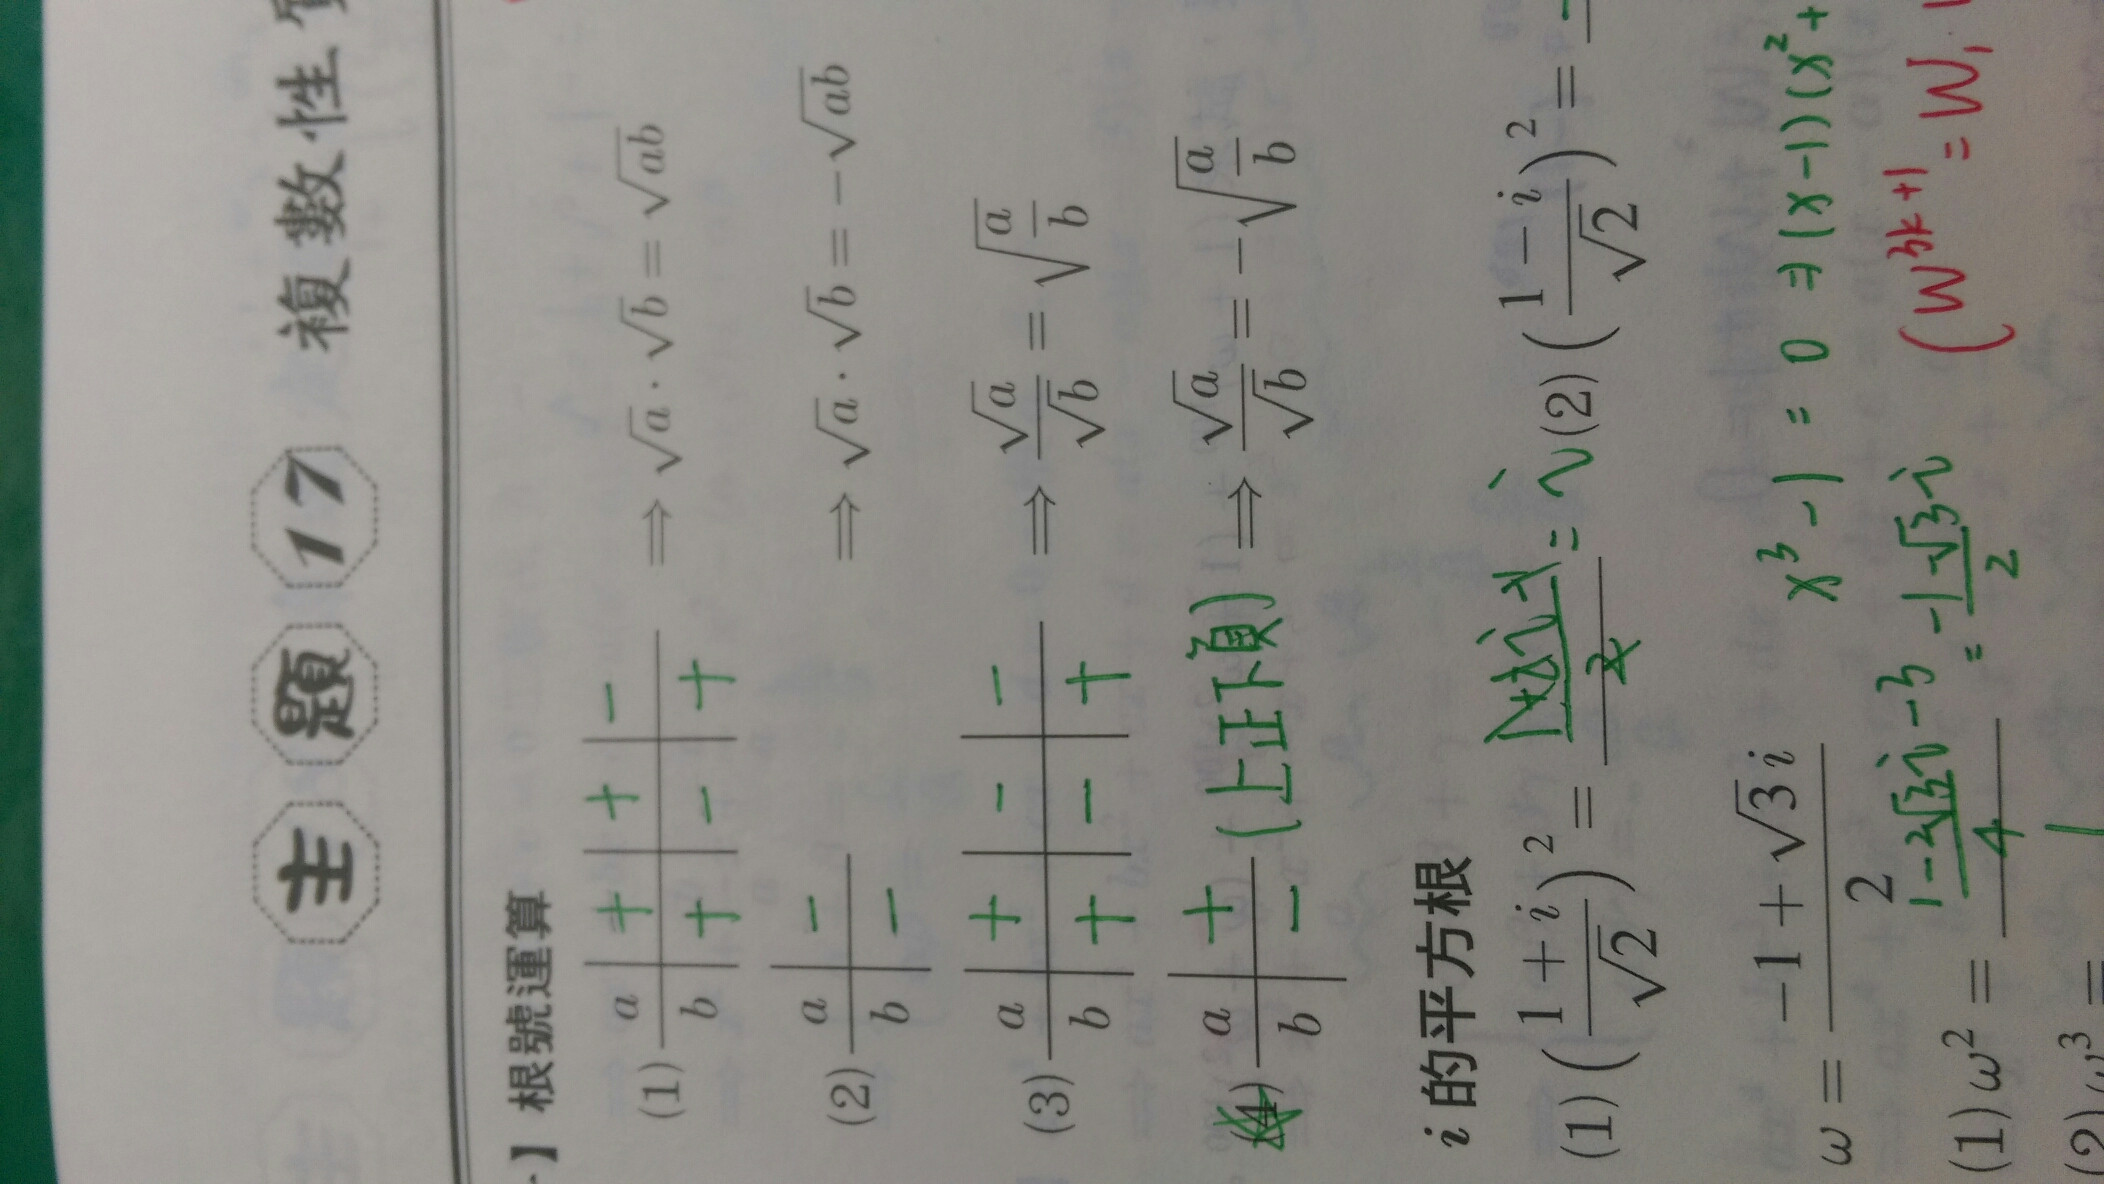 主題17 複數性
】根號運算
(1) a + + - ⇒ √a · √b = √ab
b + - +
(2) a - ⇒ √a · √b = -√ab
b -
(3) a + - - ⇒ √a/√b = √(a/b)
b + - +
(4) a + (上正下負) ⇒ √a/√b = -√(a/b)
b -
i 的平方根
(1) ((1+i)/√2)² = (1+2i-1)/2 = i (2) ((1-i)/√2)² =
ω = (-1+√3i)/2 x³-1=0 ⇒ (x-1)(x²+
(1) ω² = (1-2√3i-3)/4 = (-1-√3i)/2 (W^{3k+1} = W,
(2) ω³ =